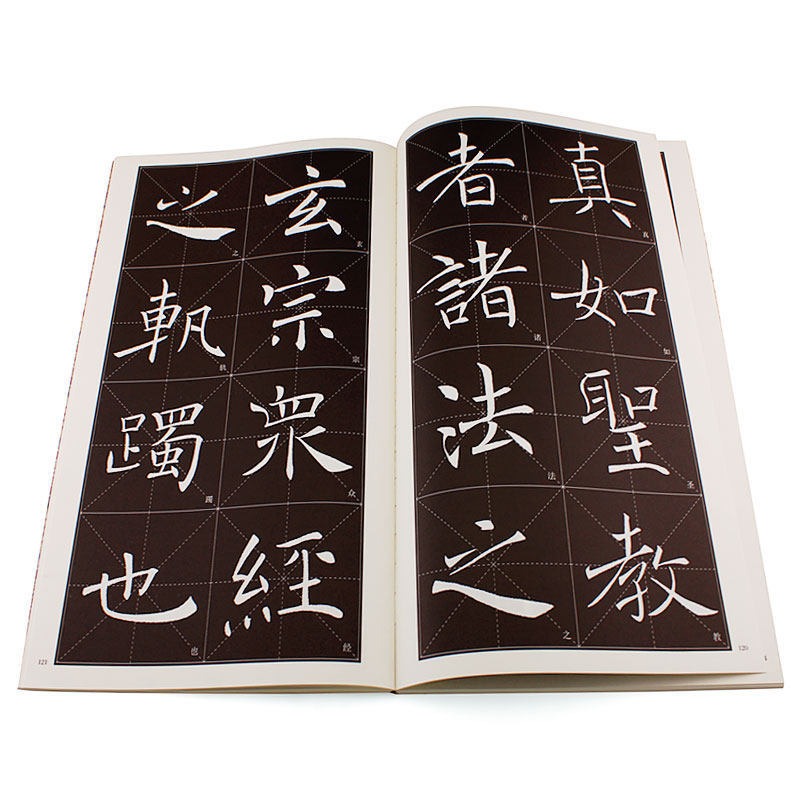 真如聖教
真如圣教
者諸法之
者诸法之
120
玄宗眾經
玄宗众经
之軓躅也
之轨躅也
121